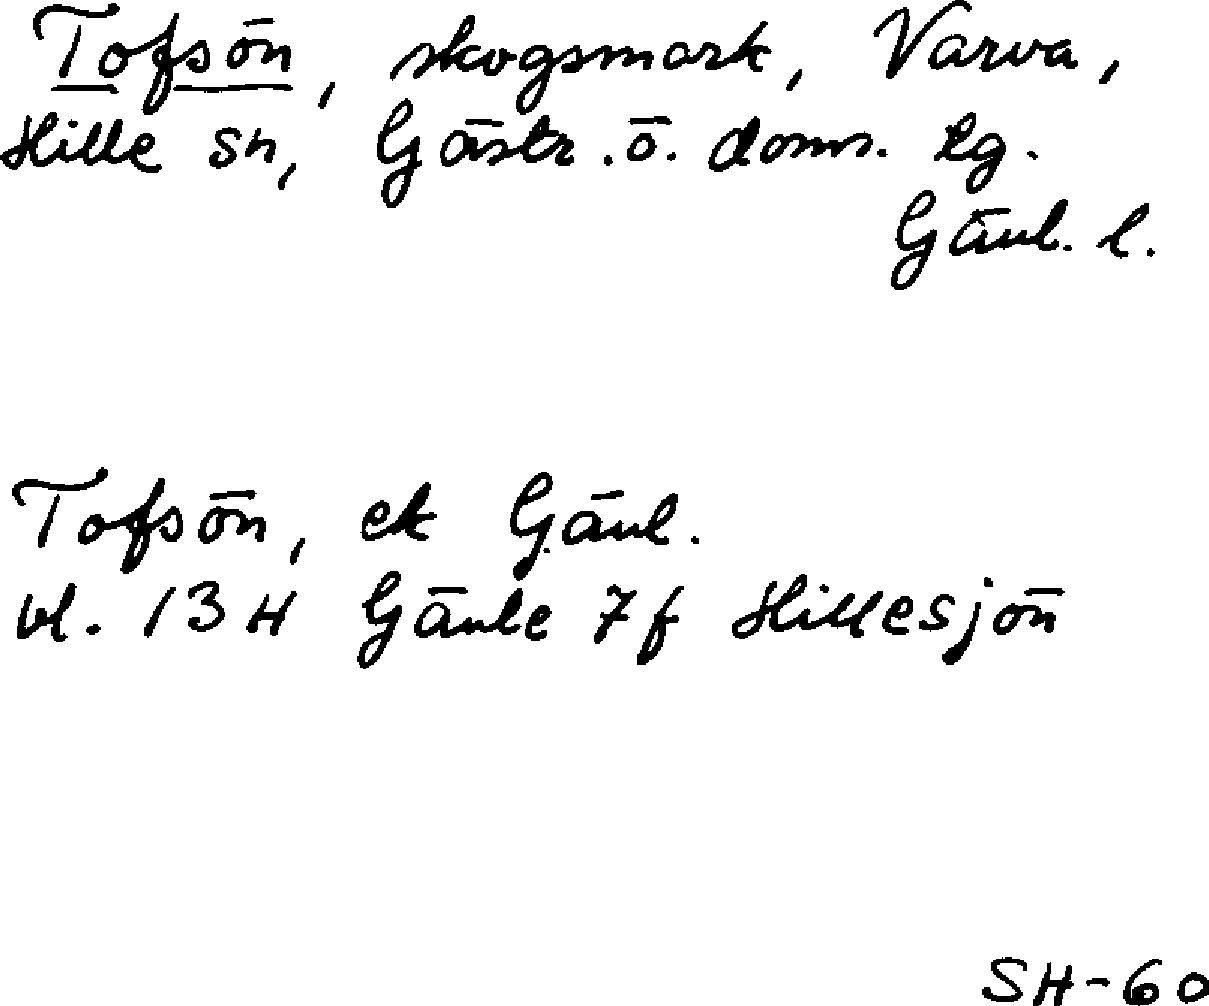 Tofsön, skogsmark, Varva,
Hille sn, Gästr. ö. doms. lg.
Gävl. l.
Tofsön, ek Gävl.
bl. 13 H Gävle 7f Hillesjön
SH-60